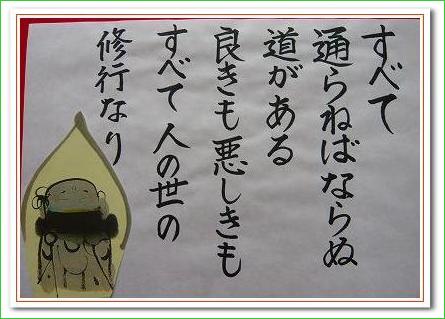 すべて
通らねばならぬ
道がある
良きも悪しきも
すべて人の世の
修行なり